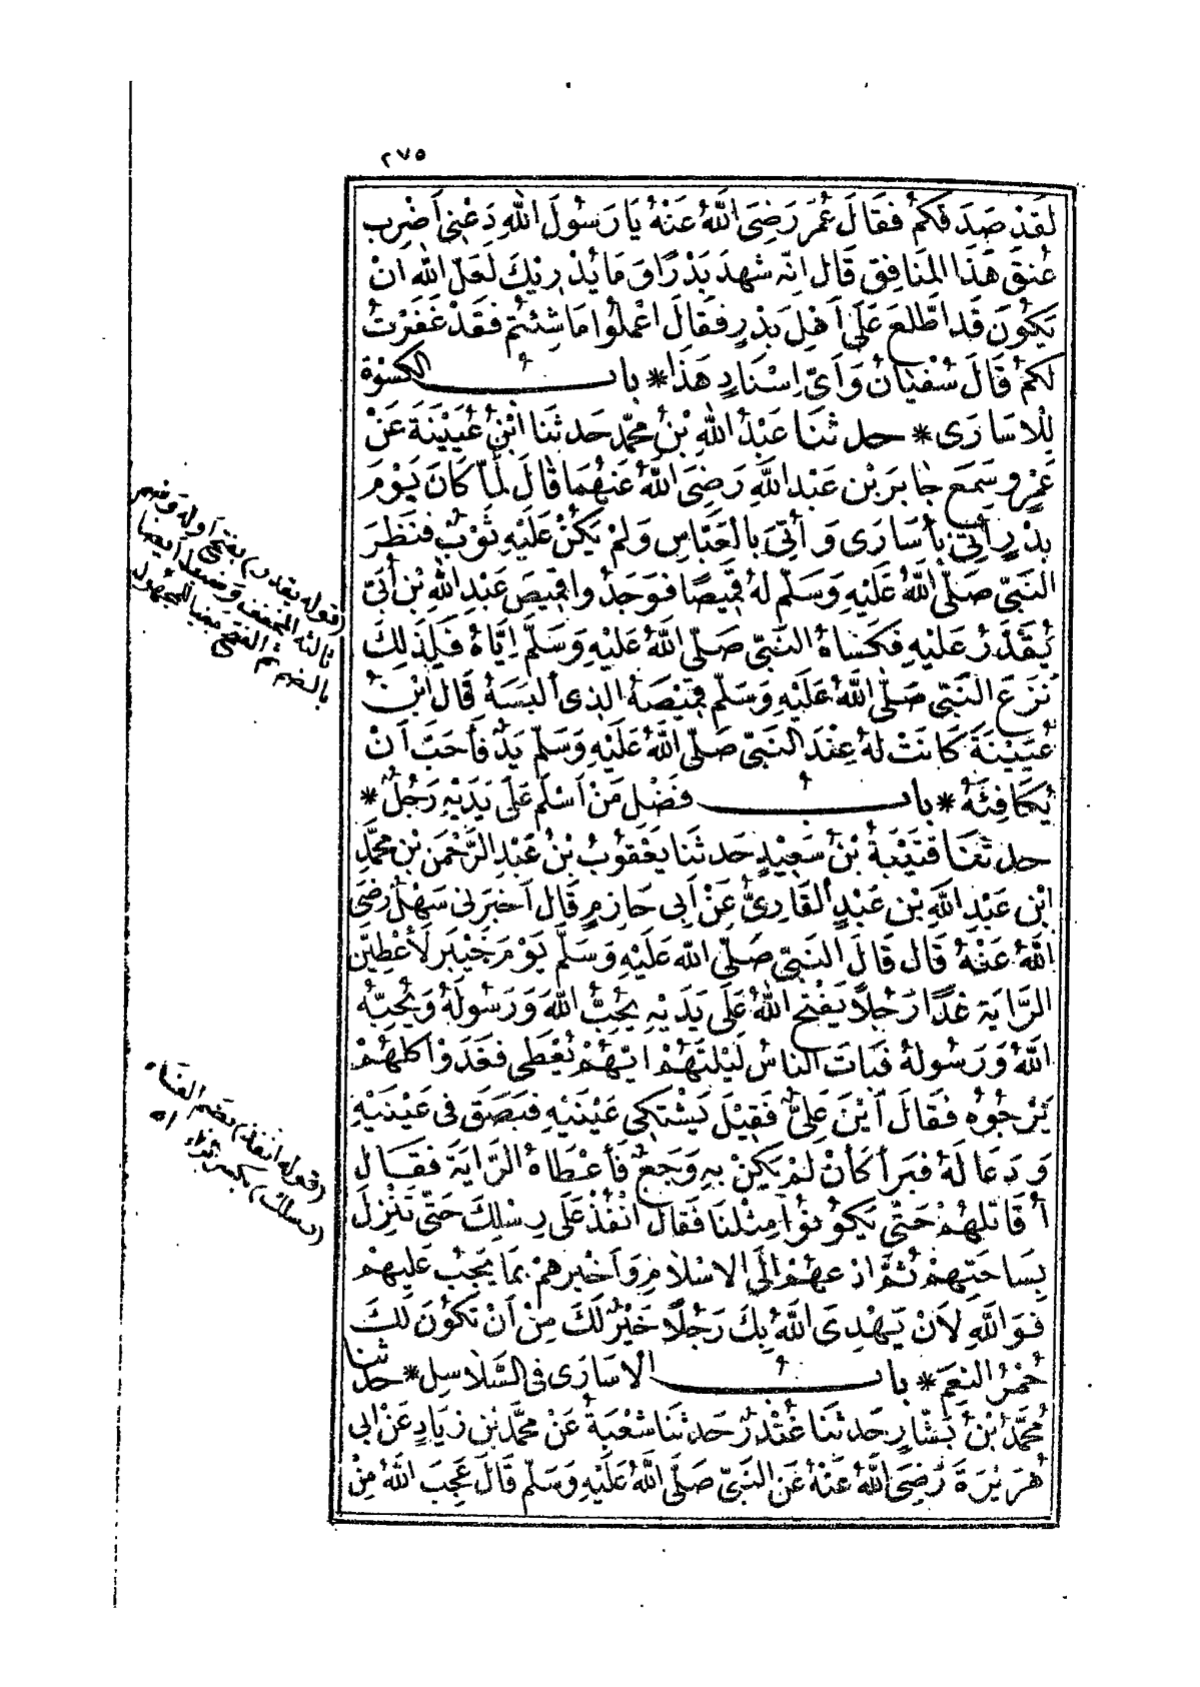 ٢٧٥
لَقَدْ صَدَقَكُمْ فَقَالَ عُمَرُ رَضِىَ اللَّهُ عَنْهُ يَا رَسُولَ اللَّهِ دَعْنِى أَضْرِب
عُنُقَ هَذَا المُنَافِقِ قَالَ انّه شَهِدَ بَدْرًا وَمَا يُدْرِيكَ لَعَلّ اللَّه اَنْ
يَكُونَ قَدِ اطَّلعَ عَلَى أَهْلِ بَدْرٍ فَقَالَ اعْمَلُوا مَا شِئْتُمْ فَقَدْ غَفَرْتُ
لَكُمْ قَالَ سُفْيَانُ وَأَىّ اِسْنَادٍ هَذَا * بابُ الكسْوَةِ
لِلْاسَارَى * حدثنَا عَبْدُ اللَّهِ بْنُ مُحَمَّد حَدثنَا ابْنُ عُيَيْنَةَ عَنْ
عَمْرٍو سَمِعَ جَابِرَ بْنَ عَبْدِ اللَّهِ رَضِىَ اللَّهُ عَنْهُمَا قَالَ لَمَّا كَانَ يَوْمَ
بَدْرٍ أُتِىَ بِأُسَارَى وَأُتِىَ بِالعَبَّاسِ وَلَمْ يَكُنْ عَلَيْهِ ثَوْبٌ فَنَظَرَ
النَّبِىّ صَلَّى اللَّهُ عَلَيْهِ وَسَلَّمَ لَهُ قَمِيصًا فَوَجَدُوا قَمِيصَ عَبْدِ اللَّهِ بْنِ أُبَىّ
يُقْدَرُ عَلَيْهِ فَكَسَاهُ النَّبِىّ صَلَّى اللَّهُ عَلَيْهِ وَسَلَّمَ اِيَّاهُ فَلِذَلِكَ
نَزَعَ النَّبِىّ صَلَّى اللَّهُ عَلَيْهِ وَسَلَّمَ قَمِيْصَهُ الذِى أَلْبَسَهُ قَالَ ابْنُ
عُيَيْنَةَ كَانَتْ لَهُ عِنْدَ النَّبِىّ صَلَّى اللَّهُ عَلَيْهِ وَسَلَّمَ يَدٌ فَأَحَبَّ أَنْ
يُكَافِئَهُ * بابُ فَضْلِ مَنْ أَسْلَمَ عَلَى يَدَيْهِ رَجُلٌ *
حدثنَا قُتَيْبَةُ بْنُ سَعِيْدٍ حَدثنَا يَعْقُوبُ بْنُ عَبْدِ الرَّحْمَنِ بْنِ مُحَمَّدِ
ابْنِ عَبْدِ اللَّهِ بْنِ عَبْدٍ القَارِىُّ عَنْ أَبِى حَازِمٍ قَالَ أَخْبَرَنِى سَهْلٌ رَضِىَ
اللَّهُ عَنْهُ قَالَ قَالَ النَّبِىّ صَلَّى اللَّه عَلَيْهِ وَسَلَّمَ يَوْمَ خَيْبَر لَأُعْطِيَنّ
الرَّايَةَ غَدًا رَجُلًا يَفْتَحُ اللَّهُ عَلَى يَدَيْهِ يُحِبُّ اللَّهَ وَرَسُولَهُ وَيُحِبّهُ
اللَّهُ وَرَسُولهُ فَبَاتَ النَّاسُ لَيْلَتَهُمْ ايّهُمْ يُعْطَى فَغَدَوْا كلهُمْ
يَرْجُوهُ فَقَالَ أَيْنَ عَلِىٌّ فَقِيْلَ يَشْتَكِى عَيْنَيْهِ فَبَصَقَ فِى عَيْنَيْهِ
وَدَعَا لَهُ فَبَرَأَ كَأَنْ لَمْ يَكُنْ بِهِ وَجَعٌ فَأَعْطَاهُ الرَّايَةَ فَقَالَ
أُقَاتِلُهُمْ حَتَّى يَكُونُوا مِثْلَنَا فَقَالَ انْفُذْ عَلَى رِسْلِكَ حَتَّى تَنْزِلَ
بِسَاحَتِهِمْ ثُمَّ ادْعُهُمْ الَى الاسْلَامِ وَأَخْبِرْهُمْ بِمَا يَجِبُ عَلَيهِمْ
فَوَاللَّهِ لَأَنْ يَهْدِىَ اللَّهُ بِكَ رَجُلًا خَيْرٌ لَكَ مِنْ أَنْ تَكُونَ لَكَ
حُمْرُ النَّعَمِ * بابُ الاسَارَى فِى السَّلَاسِلِ * حدثنا
مُحَمَّدُ بْنُ بَشَّارٍ حَدثنَا غُنْدَرٌ حَدثنَا شُعْبَةُ عَنْ مُحَمَّد بْنِ زِيَادٍ عَنْ ابِى
هُرَيْرَةَ رَضِىَ اللَّهُ عَنْهُ عَنِ النَّبِىّ صَلَّى اللَّهُ عَلَيْهِ وَسَلَّمَ قَالَ عَجِبَ اللَّهُ مِنْ
(قوله يقدر) بفتح أوله وضم
ثالثه المخفف وضبط أيضا
بالضم ثم الفتح مبنيا للمجهول
(قوله انفذ) بضم الفاء
(رسلك) بكسر الراء اه